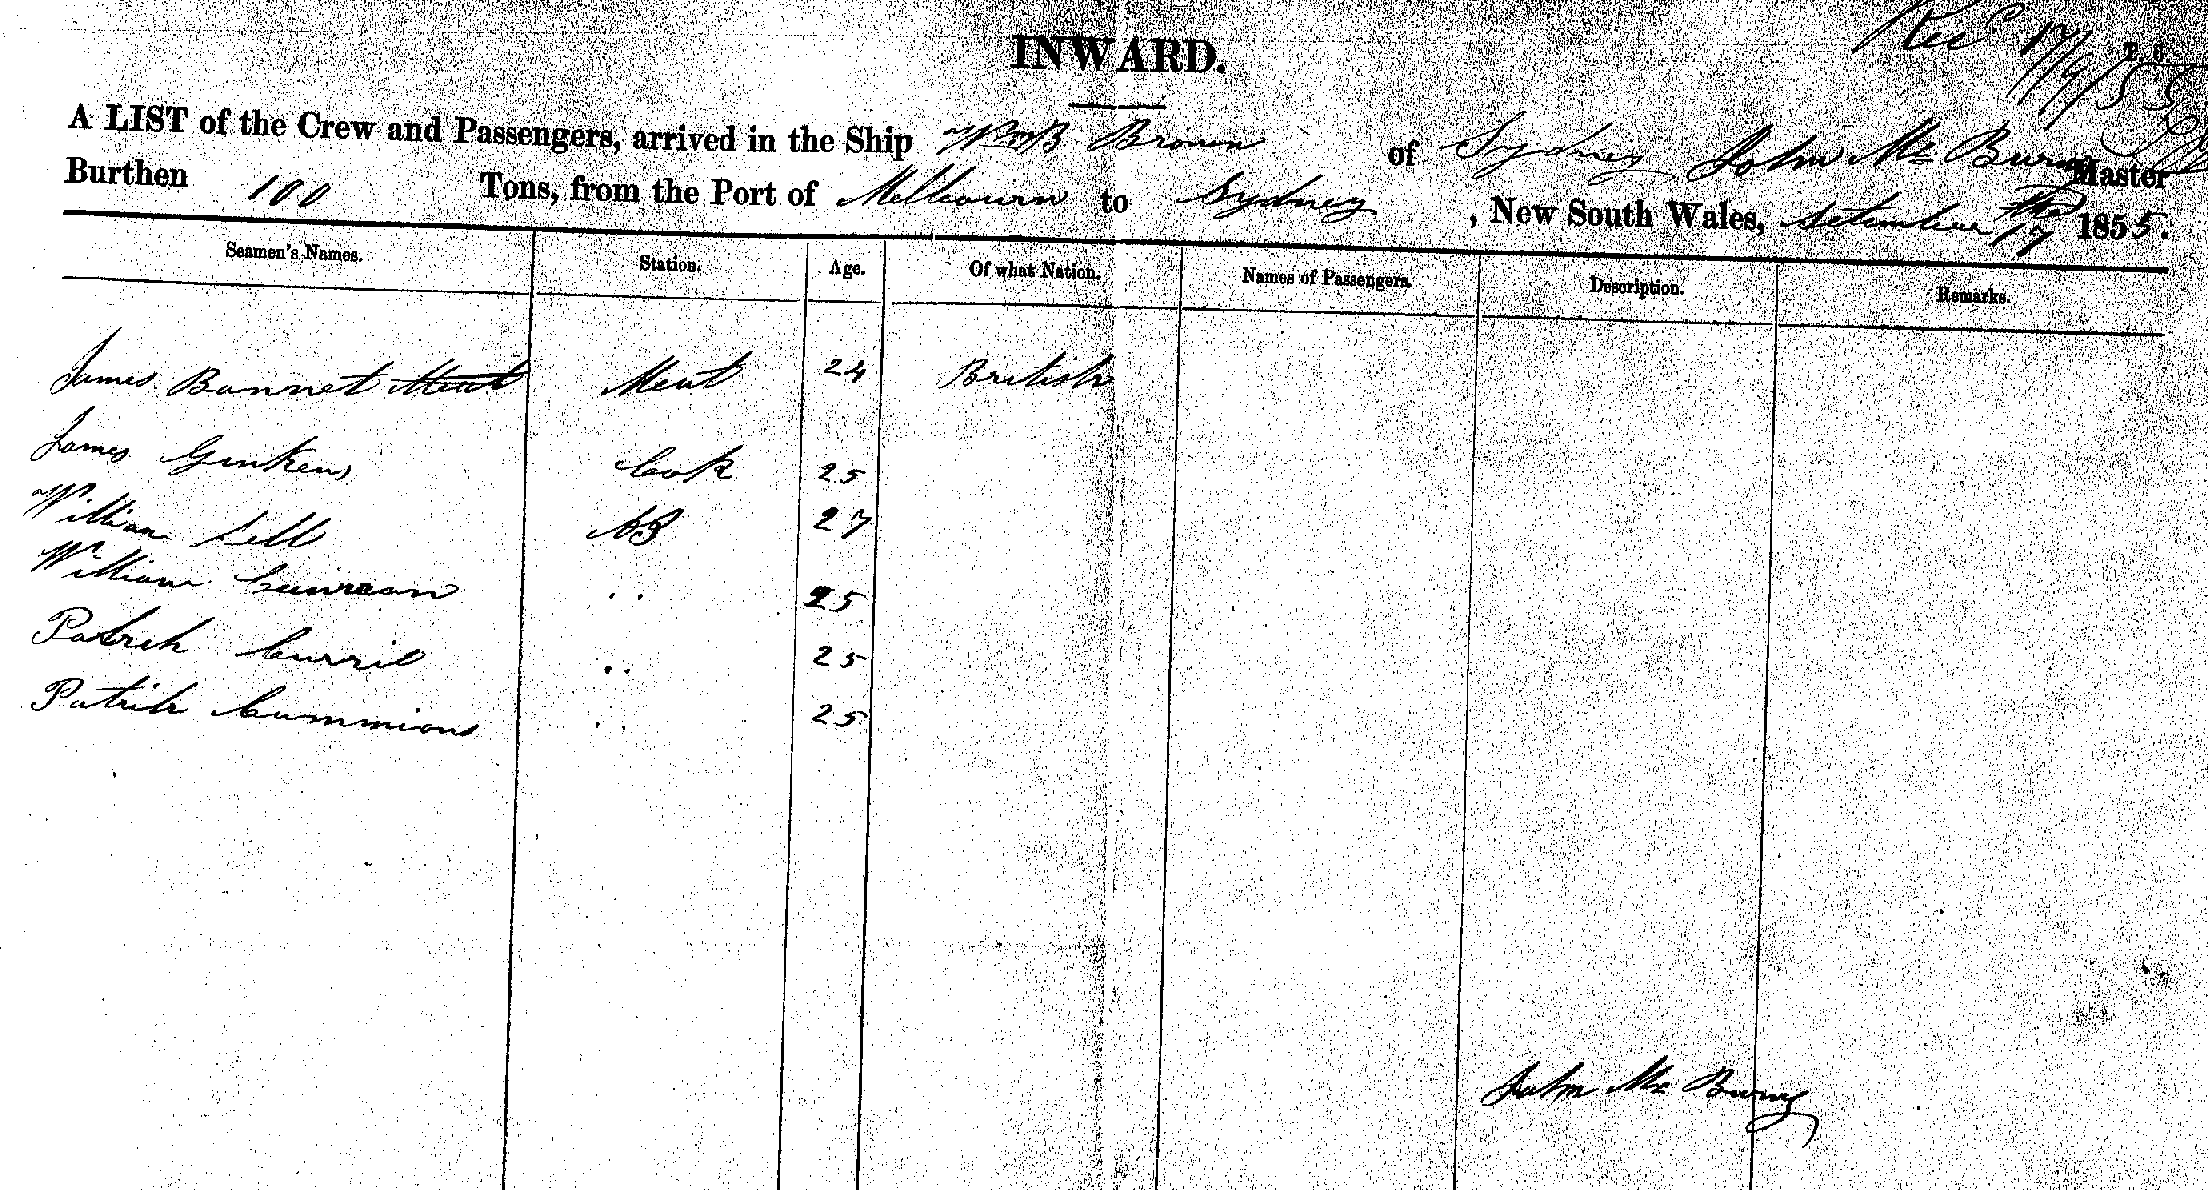 Rec 17/9/55
INWARD.
A LIST of the Crew and Passengers, arrived in the Ship Brown of Sydney John Mc Burny Master
Burthen 100 Tons, from the Port of Melbourn to Sydney, New South Wales, Setember 17 1855.
Seamen's Names. Station. Age. Of what Nation. Names of Passengers. Description. Remarks.
James Bannet Meat Meat 24 British
James Ginkens Cook 25
William Sell AB 27
William .. 25
Patrik Currie .. 25
Patrik Cummions .. 25
John Mc Burny